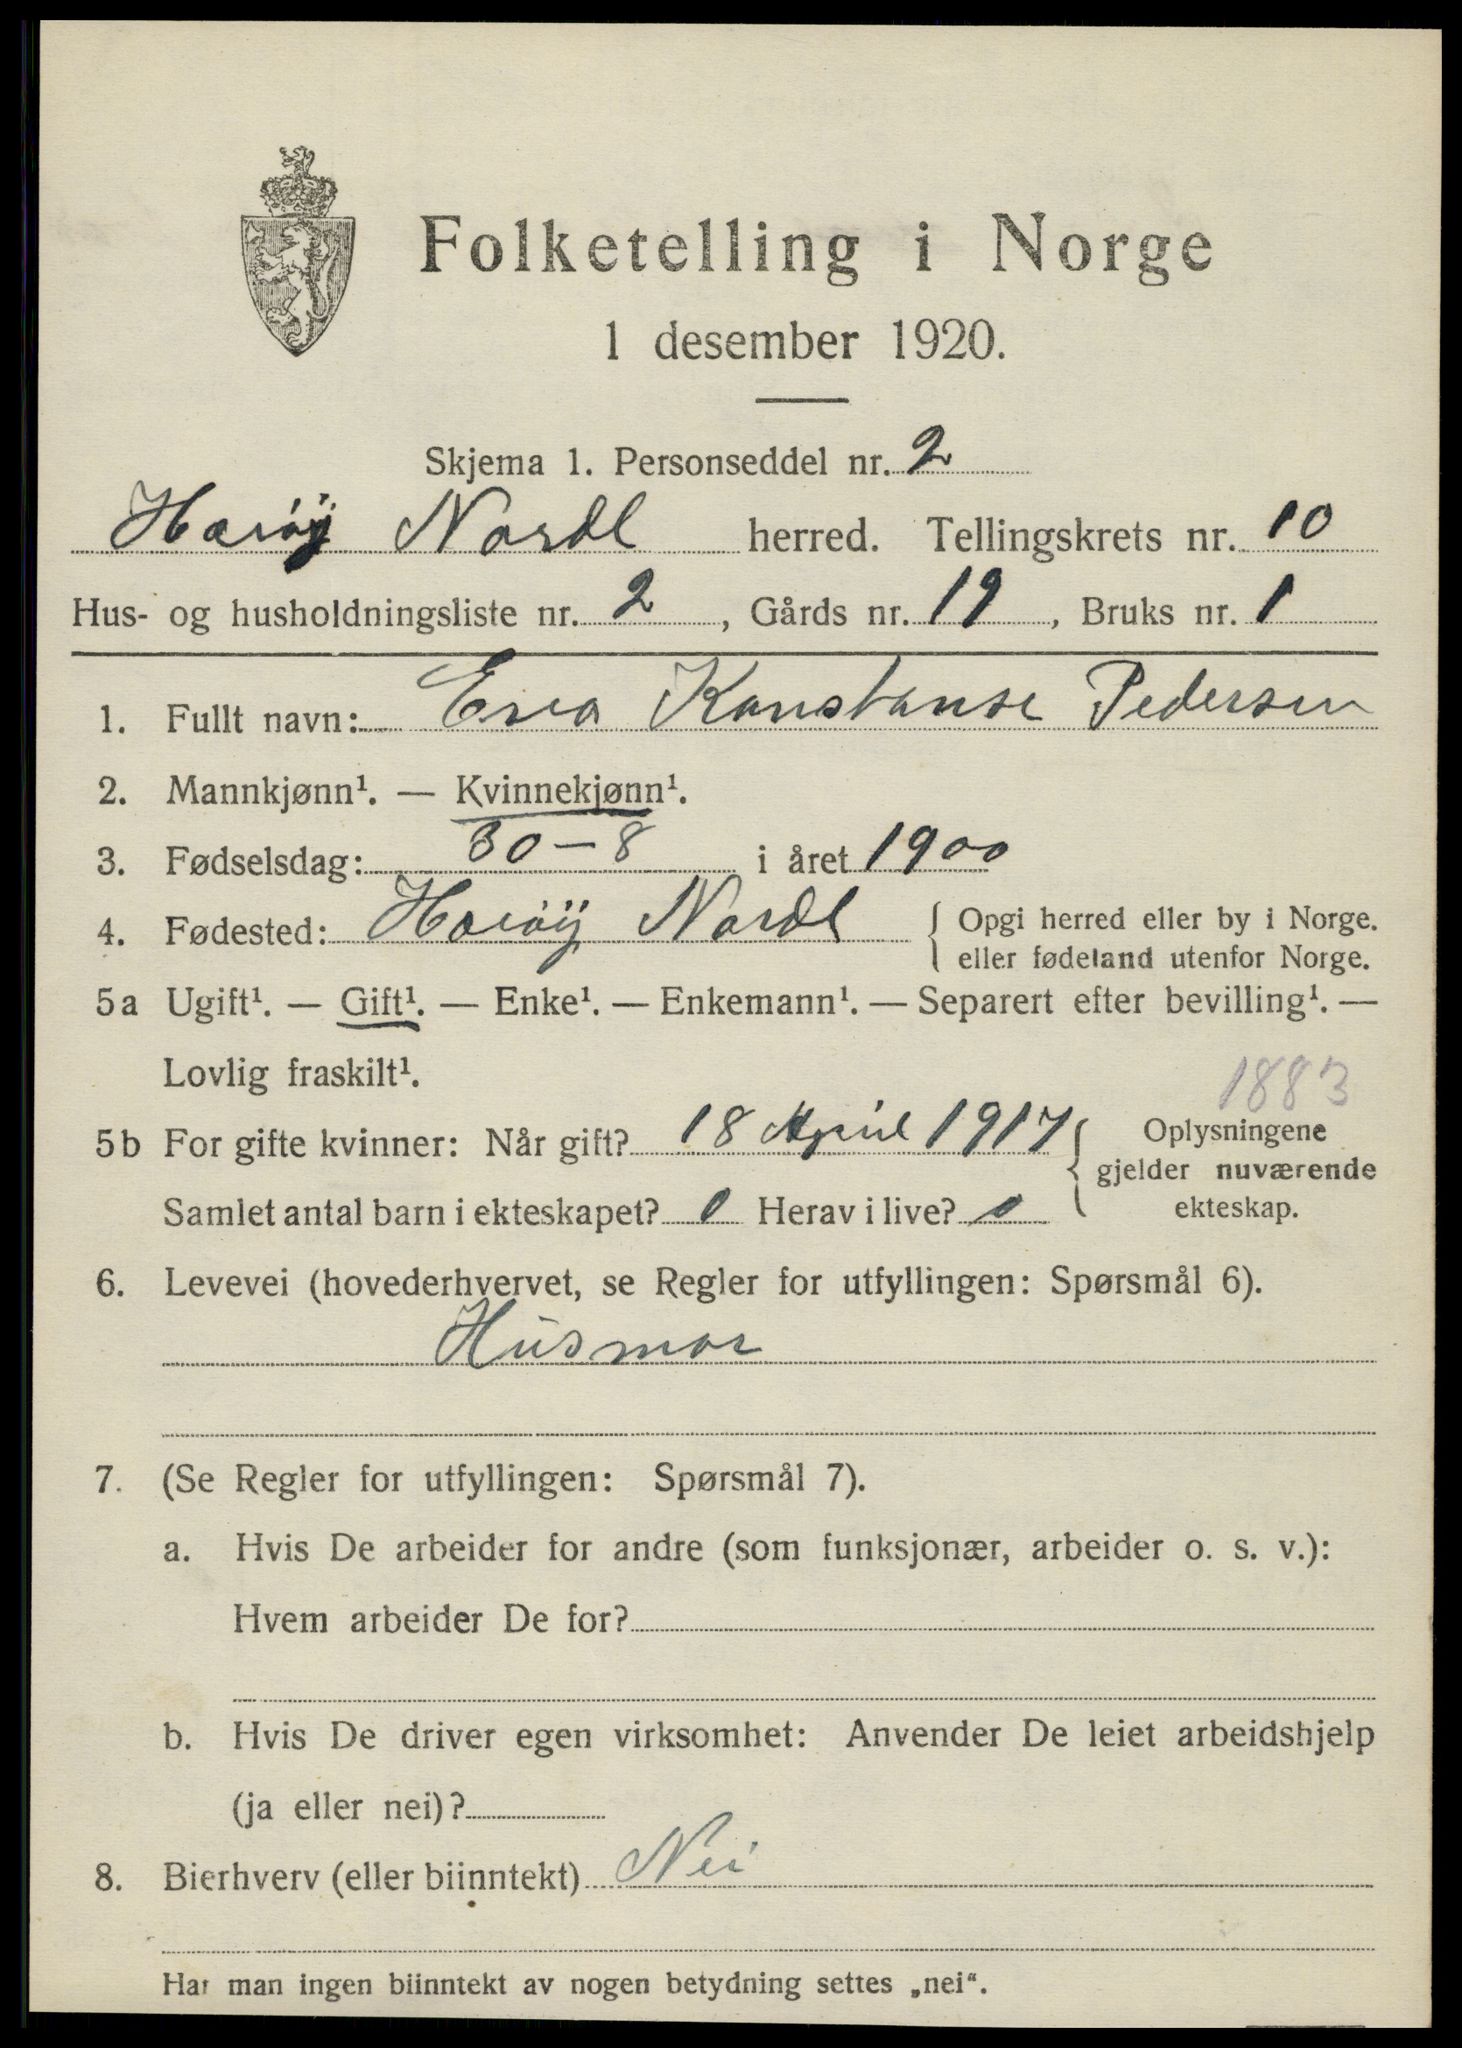 Folketelling i Norge
1 desember 1920.
Skjema 1. Personseddel nr. 2
Herøy Nordl herred. Tellingskrets nr. 10
Hus- og husholdningsliste nr. 2, Gårds nr. 19, Bruks nr. 1
1. Fullt navn: Enea Konstanse Pedersen
2. Mannkjønn¹. — Kvinnekjønn¹.
3. Fødselsdag: 30-8 i året 1900
4. Fødested: Herøy Nordl { Opgi herred eller by i Norge.
eller fødeland utenfor Norge.
5a Ugift¹. — Gift¹. — Enke¹. — Enkemann¹. — Separert efter bevilling¹. —
Lovlig fraskilt¹.
1883
5b For gifte kvinner: Når gift? 18 April 1917 { Oplysningene
gjelder nuværende
Samlet antal barn i ekteskapet? 0 Herav i live? 0 ekteskap.
6. Levevei (hovederhvervet, se Regler for utfyllingen: Spørsmål 6).
Husmor
7. (Se Regler for utfyllingen: Spørsmål 7).
a. Hvis De arbeider for andre (som funksjonær, arbeider o. s. v.):
Hvem arbeider De for?
b. Hvis De driver egen virksomhet: Anvender De leiet arbeidshjelp
(ja eller nei)?
8. Bierhverv (eller biinntekt) Nei
Har man ingen biinntekt av nogen betydning settes „nei“.